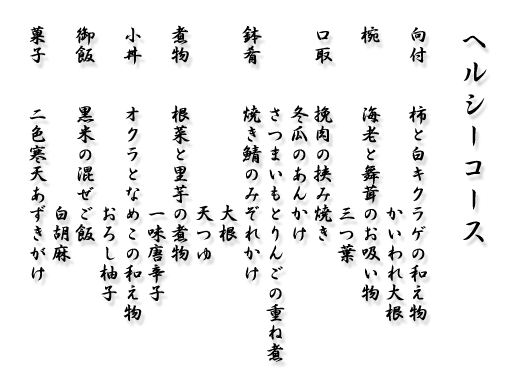 ヘルシーコース
向付 柿と白キクラゲの和え物
かいわれ大根
椀 海老と舞茸のお吸い物
三つ葉
口取 挽肉の挟み焼き
冬瓜のあんかけ
さつまいもとりんごの重ね煮
鉢肴 焼き鯖のみぞれかけ
大根
天つゆ
煮物 根菜と里芋の煮物
一味唐辛子
小丼 オクラとなめこの和え物
おろし柚子
御飯 黒米の混ぜご飯
白胡麻
菓子 二色寒天あずきがけ